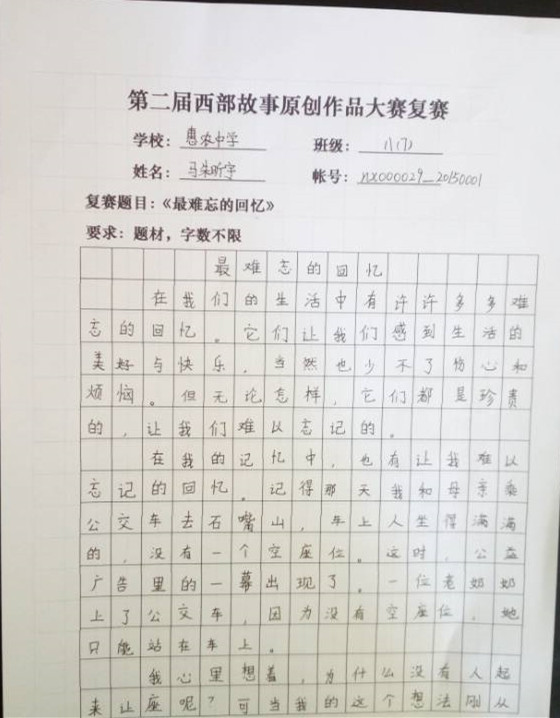 第二届西部故事原创作品大赛复赛
学校：惠农中学 班级：八(7)
姓名：马朱昕宇 帐号：nx000029_20150001
复赛题目：《最难忘的回忆》
要求：题材，字数不限
最难忘的回忆
在我们的生活中有许许多多难
忘的回忆。它们让我们感到生活的
美好与快乐，当然也少不了伤心和
烦恼。但无论怎样，它们都是珍贵
的，让我们难以忘记的。
在我的记忆中，也有让我难以
忘记的回忆。记得那天我和母亲乘
公交车去石嘴山，车上人坐得满满
的，没有一个空座位。这时，公益
广告里的一幕出现了。一位老奶奶
上了公交车，因为没有空座位，她
只能站在车上。
我心里想着，为什么没有人起
来让座呢？可当我的这个想法刚从